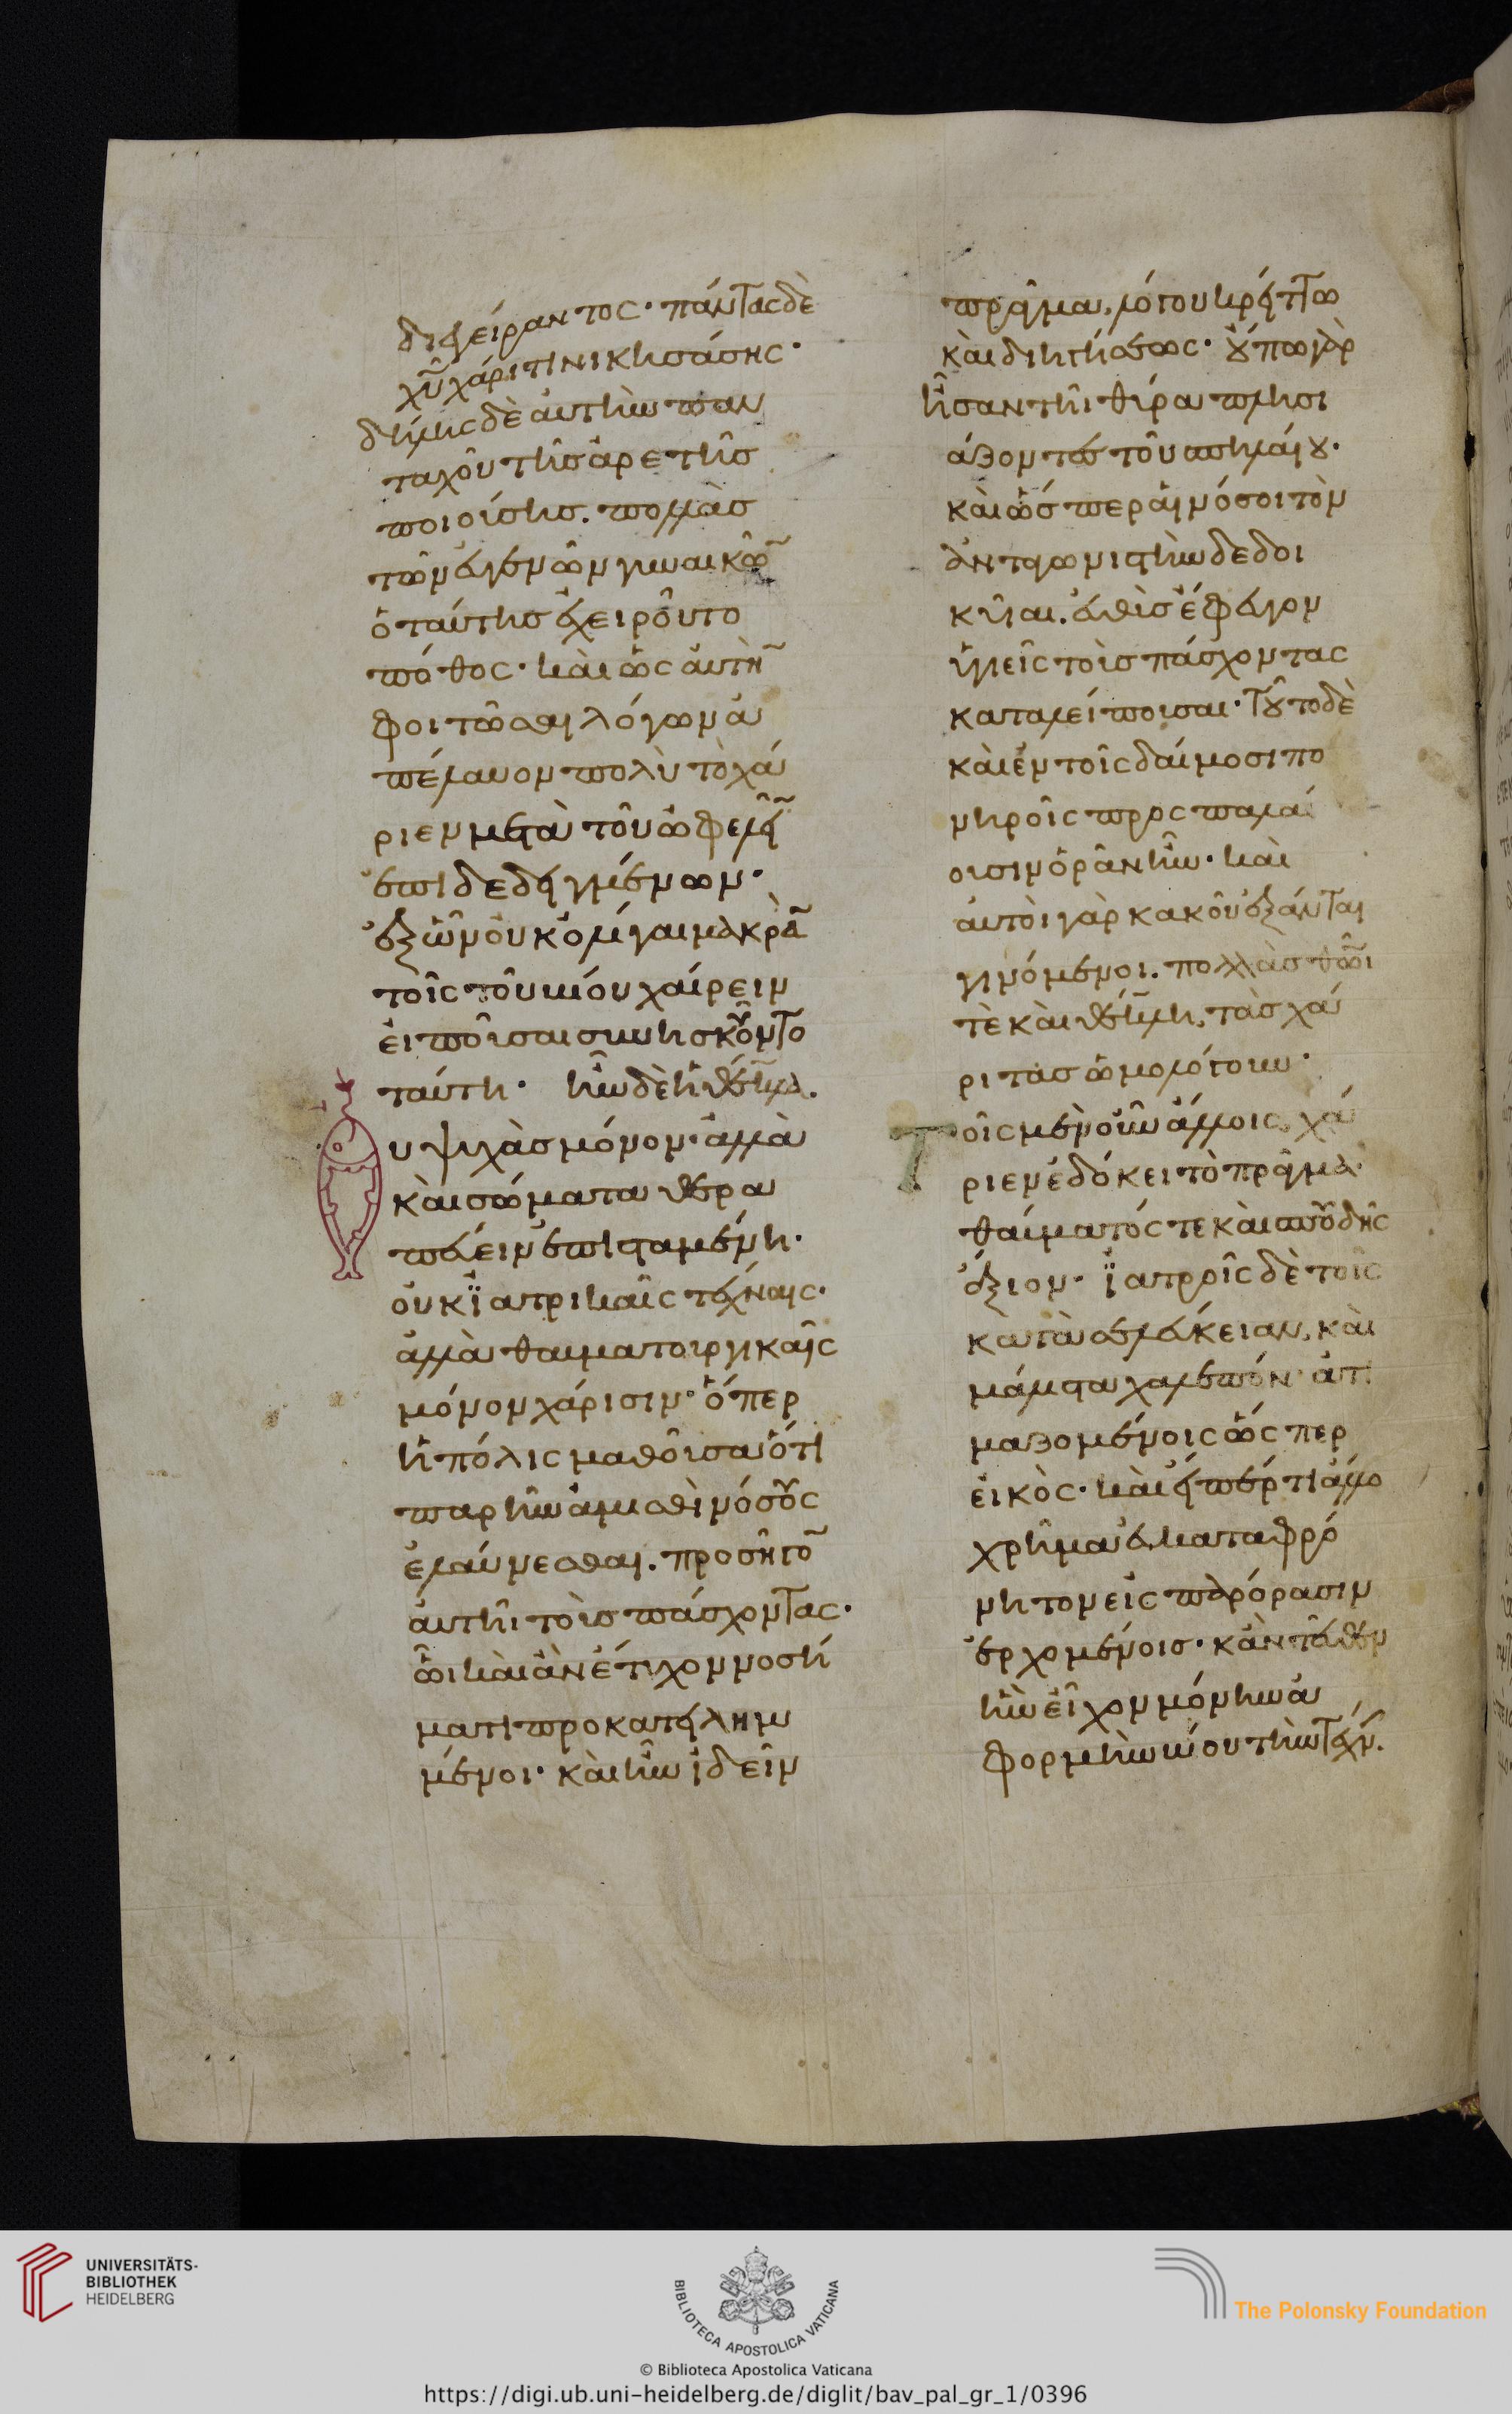 διεγείραντος· πάντας δὲ
χῦ χάριτι νικησάσης·
δήλης δὲ αὐτὴν παν
ταχοῦ τῆς ἀρετῆς
ποιούσης. πολλὰς
τῶν εὐγενῶν γυναικῶ̅
ὁ ταύτης ἐχειροῦτο
πόθος· καὶ ὡς αὐτὴ̅
φοιτῶσαι λόγων ἀ
πέλαυον πολὺ τὸ χά
ριεν μετὰ τοῦ ὠφελεῖ̅
ἐπιδεδειγμένων·
ἐξ ὧν οὐκ ὀλίγαι μακρὰ̅
τοῖς τοῦ βίου χαίρειν
εἰποῦσαι συνησκοῦντο
ταύτη· ἦν δὲ ἡ θέκλα.
Οὐ ψυχὰς μόνον· ἀλλὰ
καὶ σώματα θερα
πεύειν ἐπισταμένη·
οὐκ ϊατρικαῖς τέχναις·
ἀλλὰ θαυματουργικαῖς
μόνον χάρισιν· ὅπερ
ἡ πόλις μαθοῦσα ὅτι
παρ ἣν αἴσθοι νόσους
ἐλαύνεσθαι. προσῆγο̅
αὐτῆι τοὺς πάσχοντας·
ὧι καὶ ἂν ἔτυχον νοσή
ματι προκατειλημ
μένοι· καὶ ἦν ἰδεῖν
πρᾶγμα, λόγου κρεῖττω
καὶ διηγήσεως· οὔπω γὰρ
ἦσαν τῆι θύρα πλησι
άζοντες τοῦ σπηλαίου·
καὶ ὥσπερ αἱ νόσοι τὸν
ἀνταγωνιστὴν δεδοι
κυῖαι. εὐθὺς ἔφευγον
ὑγιεῖς τοὺς πάσχοντας
καταλείπουσαι· τοῦτο δὲ
καὶ ἐν τοῖς δαίμοσι πο
νηροῖς προσπαλαί
ουσιν ὁρᾶν ἦν· καὶ
αὐτοὶ γὰρ κακοῦ ἐξάνται
γινόμενοι. πολλὰς θῶι
τὲ καὶ θέκλη, τὰς χά
ριτας ὡμολόγουν·
Τοῖς μὲν οὖν ἄλλοις, χά
ριεν ἐδόκει τὸ πρᾶγμα.
θαύματός τε καὶ σπουδῆς
ἄξιον· ϊατροῖς δὲ τοῖς
κατὰ σελεύκειαν, καὶ
μάλιστα χαλεπὸν ἀτι
μαζομένοις ὥσπερ
εἰκὸς· καὶ εἴπέρ τι ἄλλο
χρῆμα εὐκαταφρό
νητον εἰς παρόρασιν
ἐρχομένοις· κἀντεῦθεν
ἣν εἶχον μόνην ἀ
φορμὴν βίου τὴν τέχν̅.
UNIVERSITÄTS-
BIBLIOTHEK
HEIDELBERG
BIBLIOTECA APOSTOLICA VATICANA
The Polonsky Foundation
© Biblioteca Apostolica Vaticana
https://digi.ub.uni-heidelberg.de/diglit/bav_pal_gr_1/0396